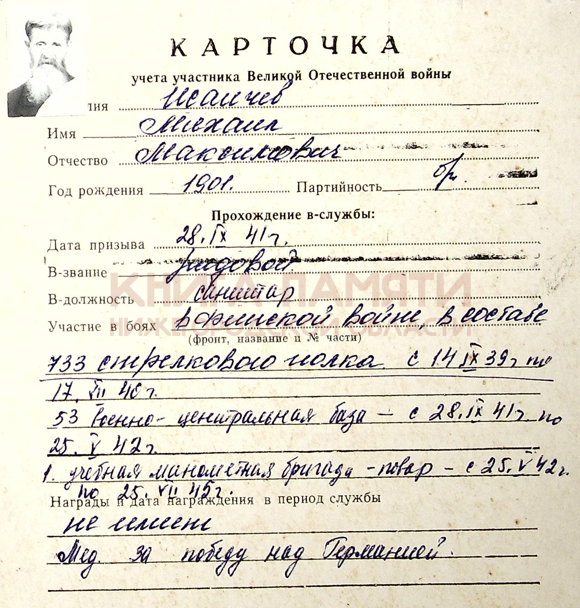 КАРТОЧКА
учета участника Великой Отечественной войны
лия Исаичев
Имя Михаил
Отчество Максимович
Год рождения 1901. Партийность бр.
Прохождение в-службы:
Дата призыва 28.IX 41г.
В-звание рядовой
В-должность санитар
Участие в боях в Финской войне, в составе
(фронт, название и № части)
733 стрелкового полка. с 14 IX 39г по
17. VII 40г.
53 военно-центральная база – с 28.IX 41г. по
25. V 42г.
1. учебная минометная бригада – повар – с 25. V 42г.
по 25. VII 45г.
Награды и дата награждения в период службы
не имеет
Мед. за победу над Германией.
КНИГА ПАМЯТИ
НИЖЕГОРОДСКОЙ ОБЛАСТИ